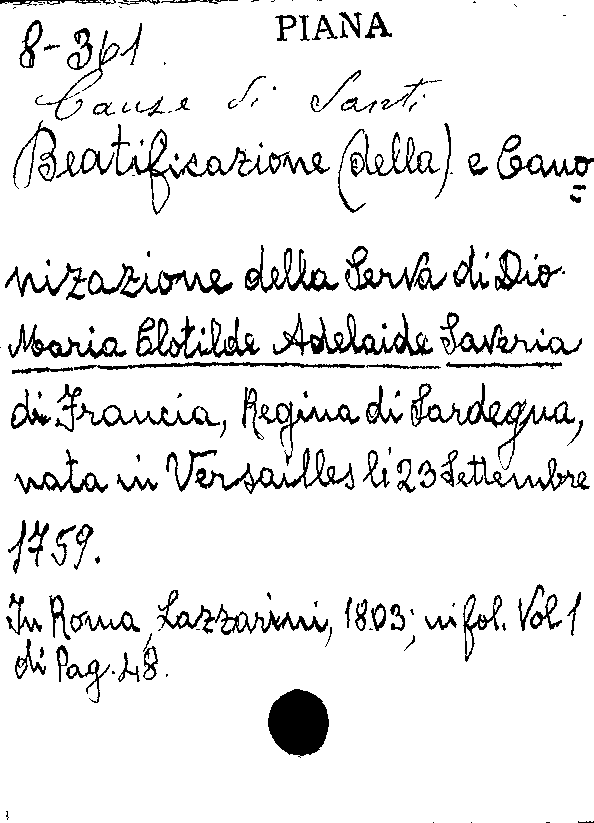 PIANA
8-361
Cause di Santi
Beatificazione (della) e Cano=
nizazione della Serva di Dio
Maria Clotilde Adelaide Saveria
di Francia, Regina di Sardegna,
nata in Versailles li 23 Settembre
1759.
In Roma, Lazzarini, 1803; in fol. Vol 1
di Pag. 48.